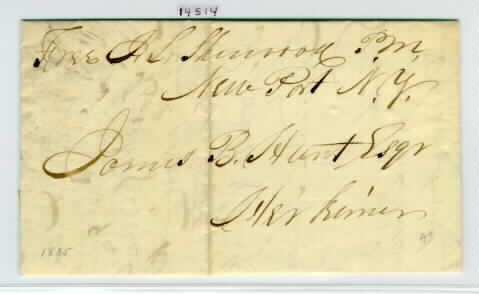 14514
Free H. S. Sherwood P.M.
New Port N.Y.
James B. Hunt Esqr
Herkimer
1835